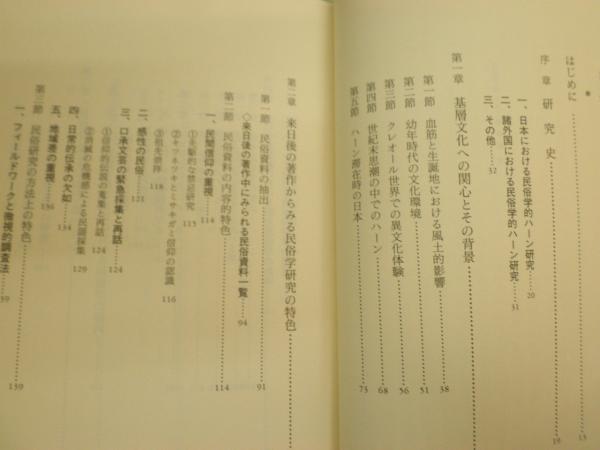 はじめに……13
序章 研究史……19
一、日本における民俗学的ハーン研究……20
二、諸外国における民俗学的ハーン研究……31
三、その他……32
第一章 基層文化への関心とその背景
第一節 血筋と生誕地における風土的影響……38
第二節 幼年時代の文化環境……51
第三節 クレオール世界での異文化体験……56
第四節 世紀末思潮の中でのハーン……68
第五節 ハーン滞在時の日本……73
第二章 来日後の著作からみる民俗学研究の特色
第一節 民俗資料の抽出……91
◇来日後の著作中にみられる民俗資料一覧……94
第二節 民俗資料の内容的特色……114
一、民間信仰の重視……114
①先駆的な禁忌研究
②キツネツキとミサキガミ信仰の認識……116
③祖先崇拝……118
二、感性の民俗……121
三、口承文芸の緊急採集と再話……124
①信仰的伝説の蒐集と再話……124
②消滅の危機感による民謡採集……129
四、日常的伝承の欠如……134
五、地域差の重視……136
第三節 民俗研究の方法上の特色……139
一、フィールドワークと微視的調査法……139